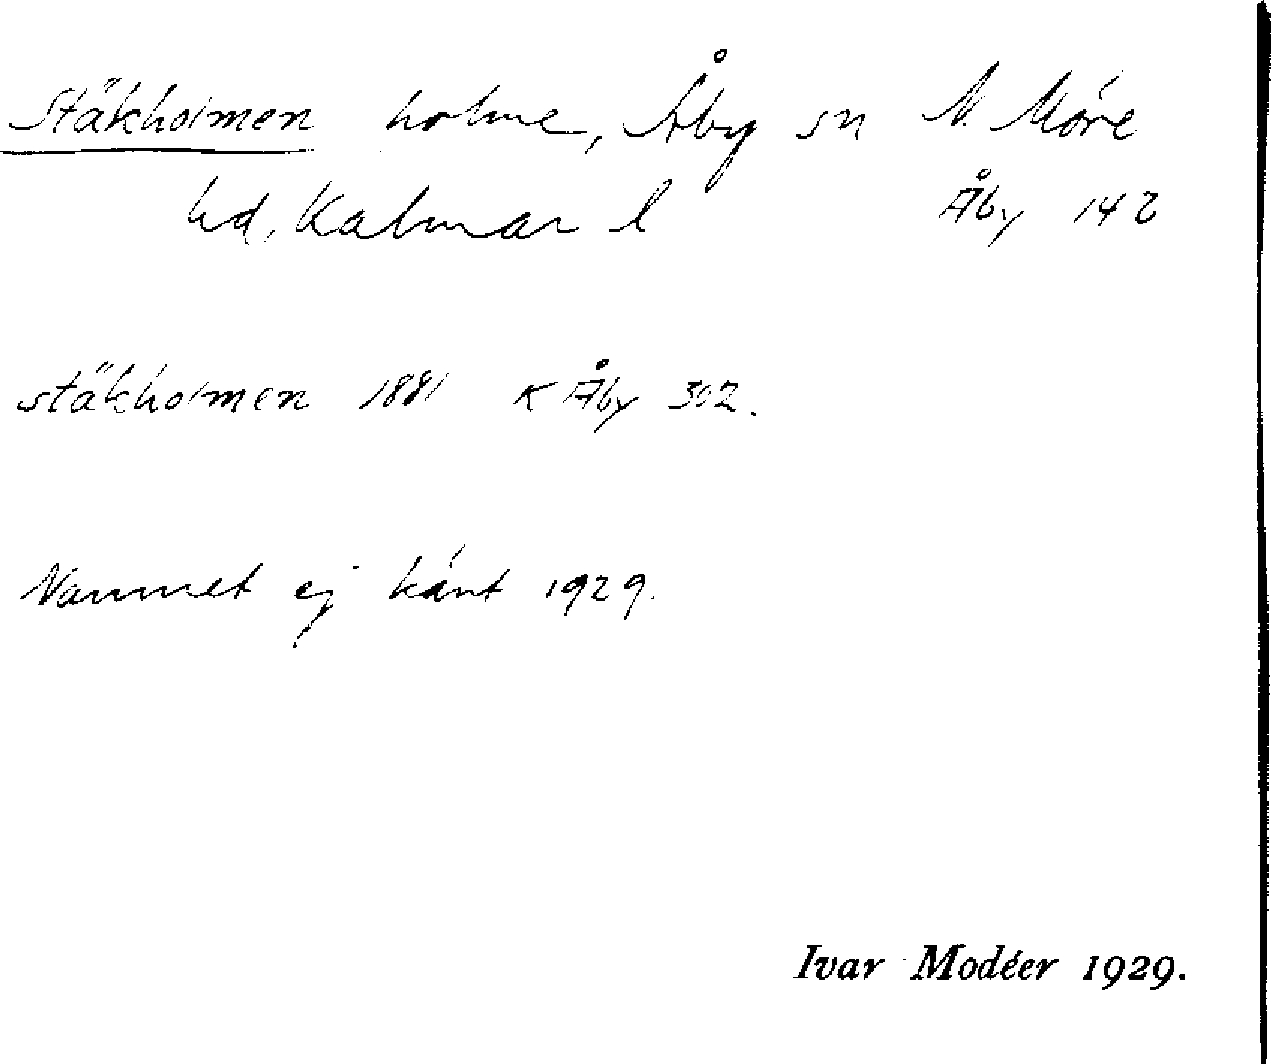 Stäkholmen holme, Åby sn N. Möre
hd, Kalmar l Åby 142
stäkholmen 1881 K Åby 302.
Namnet ej känt 1929.
Ivar Modéer 1929.